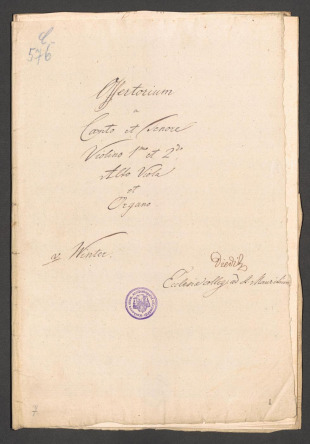 576
Offertorium
a
Canto et Tenore
Violino 1mo et 2do
Alto Viola
et
Organo
Winter.
Ecclesiae colleg: ad S.
7